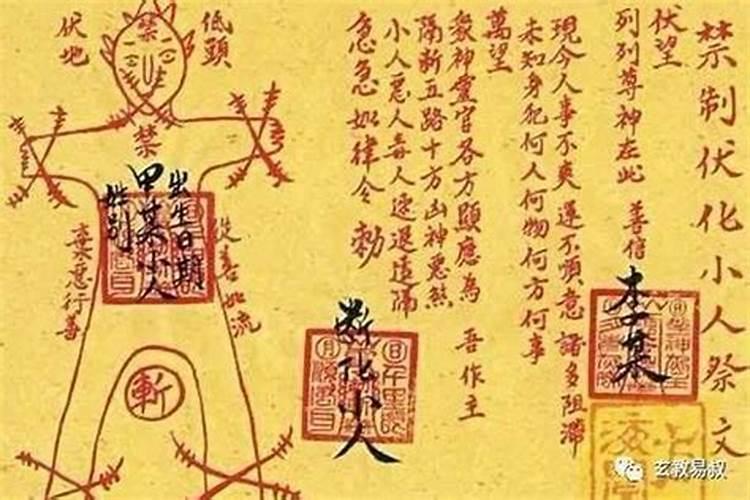 禁制伏化小人祭文
伏望
列列尊神在此 善信
李某
現今人事不爽運不順意諸多阻滯
未知身犯何人何物何方何事
萬望
衆神靈官各方顯應為 吾作主
隔斷五路十方凶神惡煞
小人惡人毒人速退遠隔
急急如律令 勅
断化小人
低頭
伏地
禁
禁
出生日期
甲某小人
姓别
從善如流
棄惡行善
斬
玄教易叔